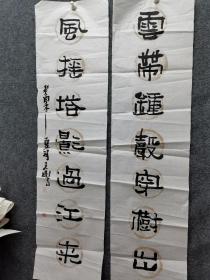 雲帶鍾聲穿樹出
風搖塔影過江來